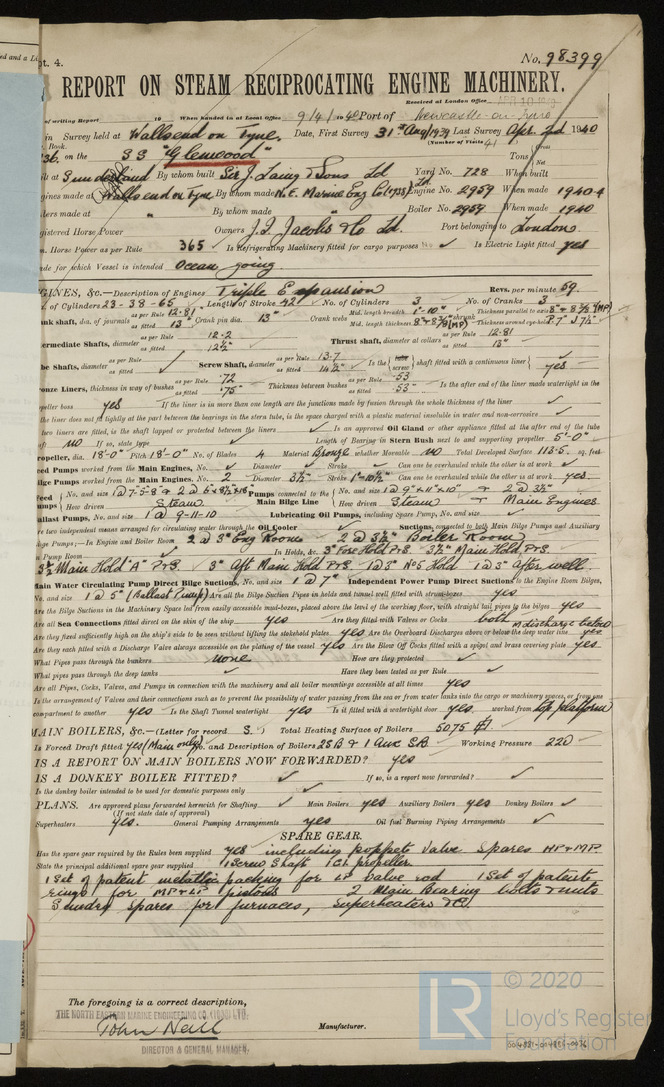 pt. 4.
No. 98399
REPORT ON STEAM RECIPROCATING ENGINE MACHINERY.
Received at London Office
of writing Report 19 When handed in at Local Office 9/4/1940 Port of Newcastle-on-Tyne
in Survey held at Wallsend on Tyne, Date, First Survey 31st Aug 1939 Last Survey Apr. 2nd 1940
Book. (Number of Visits 41
36. on the SS "Glenwood" Tons Gross Net
ilt at Sunderland By whom built Sir J. Laing & Sons Ld Yard No. 728 When built
gines made at Wallsend on Tyne By whom made N.E. Marine Eng Co (1938) Ld. Engine No. 2959 When made 1940-4
lers made at " By whom made " Boiler No. 2959 When made 1940
gistered Horse Power Owners J. I. Jacobs & Co Ld. Port belonging to London
m. Horse Power as per Rule 365 ✓ Is Refrigerating Machinery fitted for cargo purposes No ✓ Is Electric Light fitted yes
ade for which Vessel is intended Ocean going.
GINES, &c.—Description of Engines Triple Expansion Revs. per minute 59
. of Cylinders 23 - 38 - 65 Length of Stroke 42" No. of Cylinders 3 No. of Cranks 3
ank shaft, dia. of journals as per Rule 12.81 as fitted 13" Crank pin dia. 13" Crank webs Mid. length breadth 1'-10" Mid. length thickness 8" & 8 3/8" (MP) shrunk Thickness parallel to axis 8" & 8 3/8" (MP) Thickness around eye-hole
ermediate Shafts, diameter as per Rule 12.2 as fitted 12½" Thrust shaft, diameter at collars as per Rule 12.81 as fitted 13"
be Shafts, diameter as per Rule as fitted ✓ Screw Shaft, diameter as per Rule 13.7 as fitted 14½" Is the tube screw shaft fitted with a continuous liner yes
ronze Liners, thickness in way of bushes as per Rule .72 as fitted .75" Thickness between bushes as per Rule .53 as fitted .53" Is the after end of the liner made watertight in the
opeller boss yes If the liner is in more than one length are the junctions made by fusion through the whole thickness of the liner ✓
the liner does not fit tightly at the part between the bearings in the stern tube, is the space charged with a plastic material insoluble in water and non-corrosive ✓
two liners are fitted, is the shaft lapped or protected between the liners ✓ Is an approved Oil Gland or other appliance fitted at the after end of the tube
aft NO If so, state type ✓ Length of Bearing in Stern Bush next to and supporting propeller 5'-0"
ropeller, dia. 18'-0" Pitch 18'-0" No. of Blades 4 Material Bronze whether Moveable NO Total Developed Surface 113.5. sq. feet
eed Pumps worked from the Main Engines, No. ✓ Diameter ✓ Stroke ✓ Can one be overhauled while the other is at work ✓
ilge Pumps worked from the Main Engines, No. 2 Diameter 3½" Stroke 1'-10½" Can one be overhauled while the other is at work yes.
Feed Pumps No. and size Pumps connected to the Main Bilge Line No. and size 1 @ 9" × 11" × 10" & 2 @ 3½"
How driven Steam How driven Steam & Main Engines
allast Pumps, No. and size 1 @ 9-11-10 Lubricating Oil Pumps, including Spare Pump, No. and size ✓
re two independent means arranged for circulating water through the Oil Cooler ✓ Suctions, connected to both Main Bilge Pumps and Auxiliary
ilge Pumps;—In Engine and Boiler Room 2 @ 3" Eng Room 2 @ 3½" Boiler Room
n Pump Room ✓ In Holds, &c. 3" Fore Hold P & S. 3½" Main Hold P & S.
3½" Main Hold "A" P & S. 3" Aft Main Hold P & S. 1 @ 3" No 5 Hold 1 @ 3" After well.
Main Water Circulating Pump Direct Bilge Suctions, No. and size 1 @ 7" Independent Power Pump Direct Suctions to the Engine Room Bilges,
No. and size 1 @ 5" (Ballast Pump) Are all the Bilge Suction Pipes in holds and tunnel well fitted with strum-boxes yes
Are the Bilge Suctions in the Machinery Space led from easily accessible mud-boxes, placed above the level of the working floor, with straight tail pipes to the bilges yes
Are all Sea Connections fitted direct on the skin of the ship yes Are they fitted with Valves or Cocks both
Are they fixed sufficiently high on the ship's side to be seen without lifting the stokehold plates yes Are the Overboard Discharges above or below the deep water line m discharge below yes.
Are they each fitted with a Discharge Valve always accessible on the plating of the vessel yes Are the Blow Off Cocks fitted with a spigot and brass covering plate yes
What Pipes pass through the bunkers none How are they protected ✓
What pipes pass through the deep tanks ✓ Have they been tested as per Rule ✓
Are all Pipes, Cocks, Valves, and Pumps in connection with the machinery and all boiler mountings accessible at all times yes
Is the arrangement of Valves and their connections such as to prevent the possibility of water passing from the sea or from water tanks into the cargo or machinery spaces, or from one
compartment to another yes Is the Shaft Tunnel watertight yes Is it fitted with a watertight door yes. worked from top platform
MAIN BOILERS, &c.—(Letter for record S. ) Total Heating Surface of Boilers 5075
Is Forced Draft fitted yes (Main only) No. and Description of Boilers 2 SB & 1 Aux S.B. Working Pressure 220
IS A REPORT ON MAIN BOILERS NOW FORWARDED? yes
IS A DONKEY BOILER FITTED? ✓ If so, is a report now forwarded? ✓
Is the donkey boiler intended to be used for domestic purposes only ✓
PLANS. Are approved plans forwarded herewith for Shafting ✓ Main Boilers yes Auxiliary Boilers yes Donkey Boilers ✓
(If not state date of approval)
Superheaters yes. General Pumping Arrangements yes Oil fuel Burning Piping Arrangements ✓
SPARE GEAR.
Has the spare gear required by the Rules been supplied yes including poppet valve spares HP & MP
State the principal additional spare gear supplied 1 Screw Shaft 1 C.I. propeller
1 Set of patent metallic packing for LP valve rod 1 Set of patent
rings for MP & LP pistons 2 Main Bearing bolts & nuts
Sundry spares for furnaces, superheaters &c.
The foregoing is a correct description,
THE NORTH EASTERN MARINE ENGINEERING CO. (1938) LTD.
John Neill
Manufacturer.
DIRECTOR & GENERAL MANAGER.
LR
© 2020
Lloyd's Register
Foundation